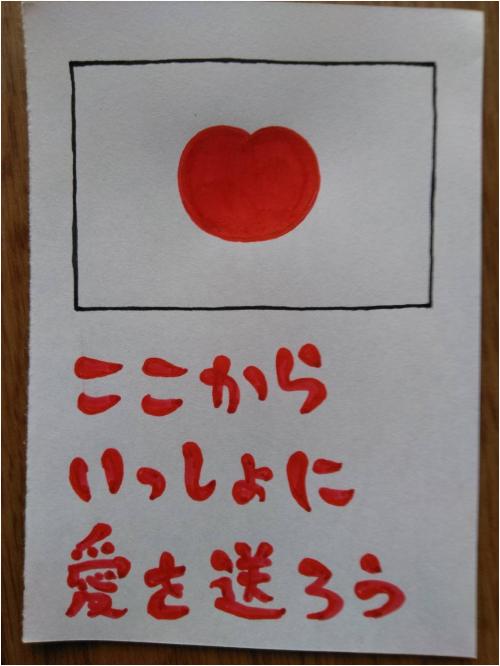 ここから
いっしょに
愛を送ろう